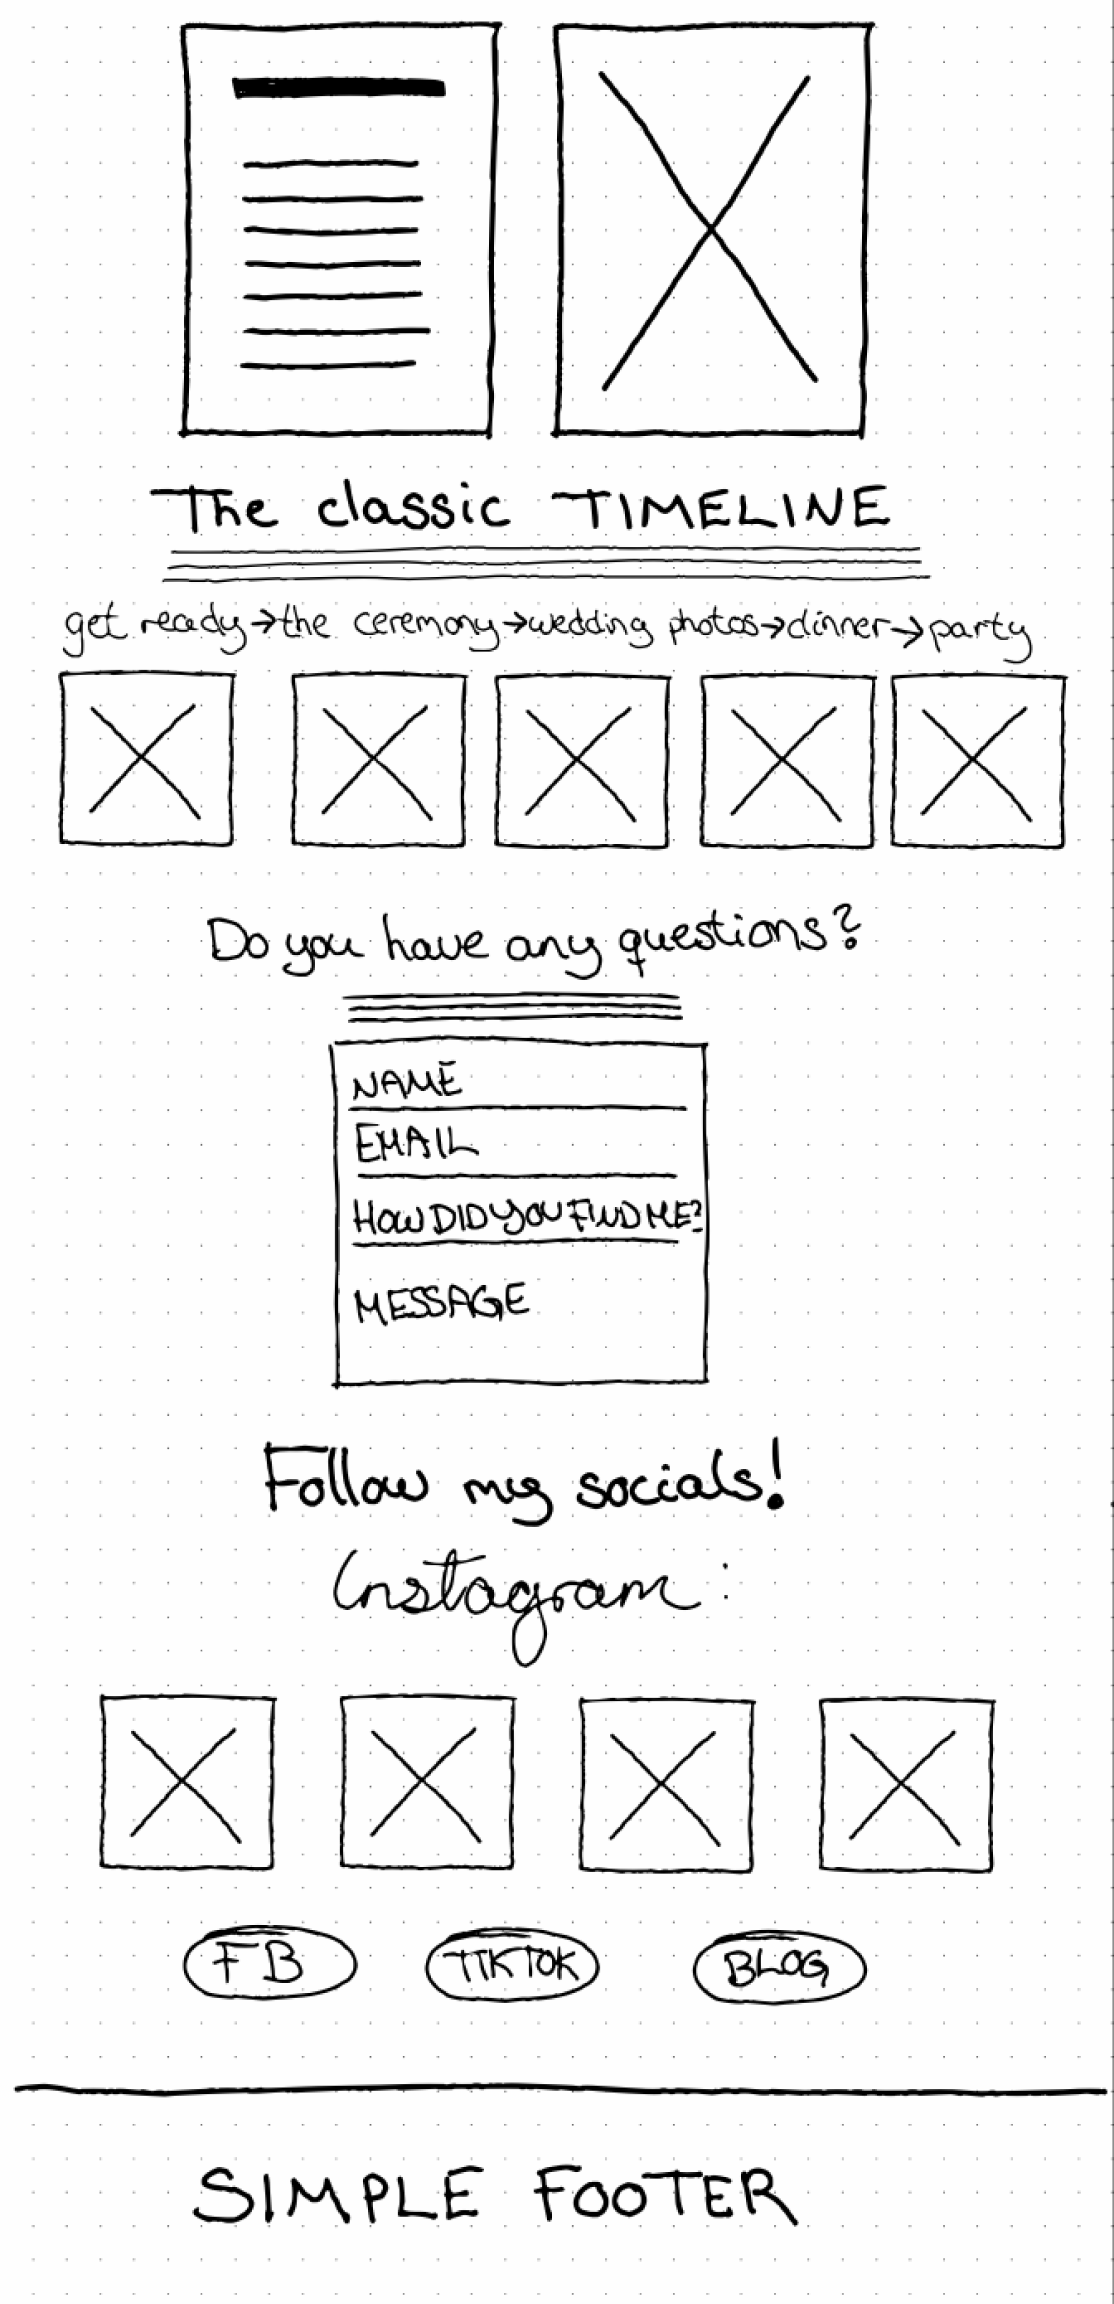 The classic TIMELINE
get ready→the ceremony→wedding photos→dinner→party
Do you have any questions?
NAME
EMAIL
HOW DID YOU FIND ME?
MESSAGE
Follow my socials!
Instagram:
FB TIKTOK BLOG
SIMPLE FOOTER